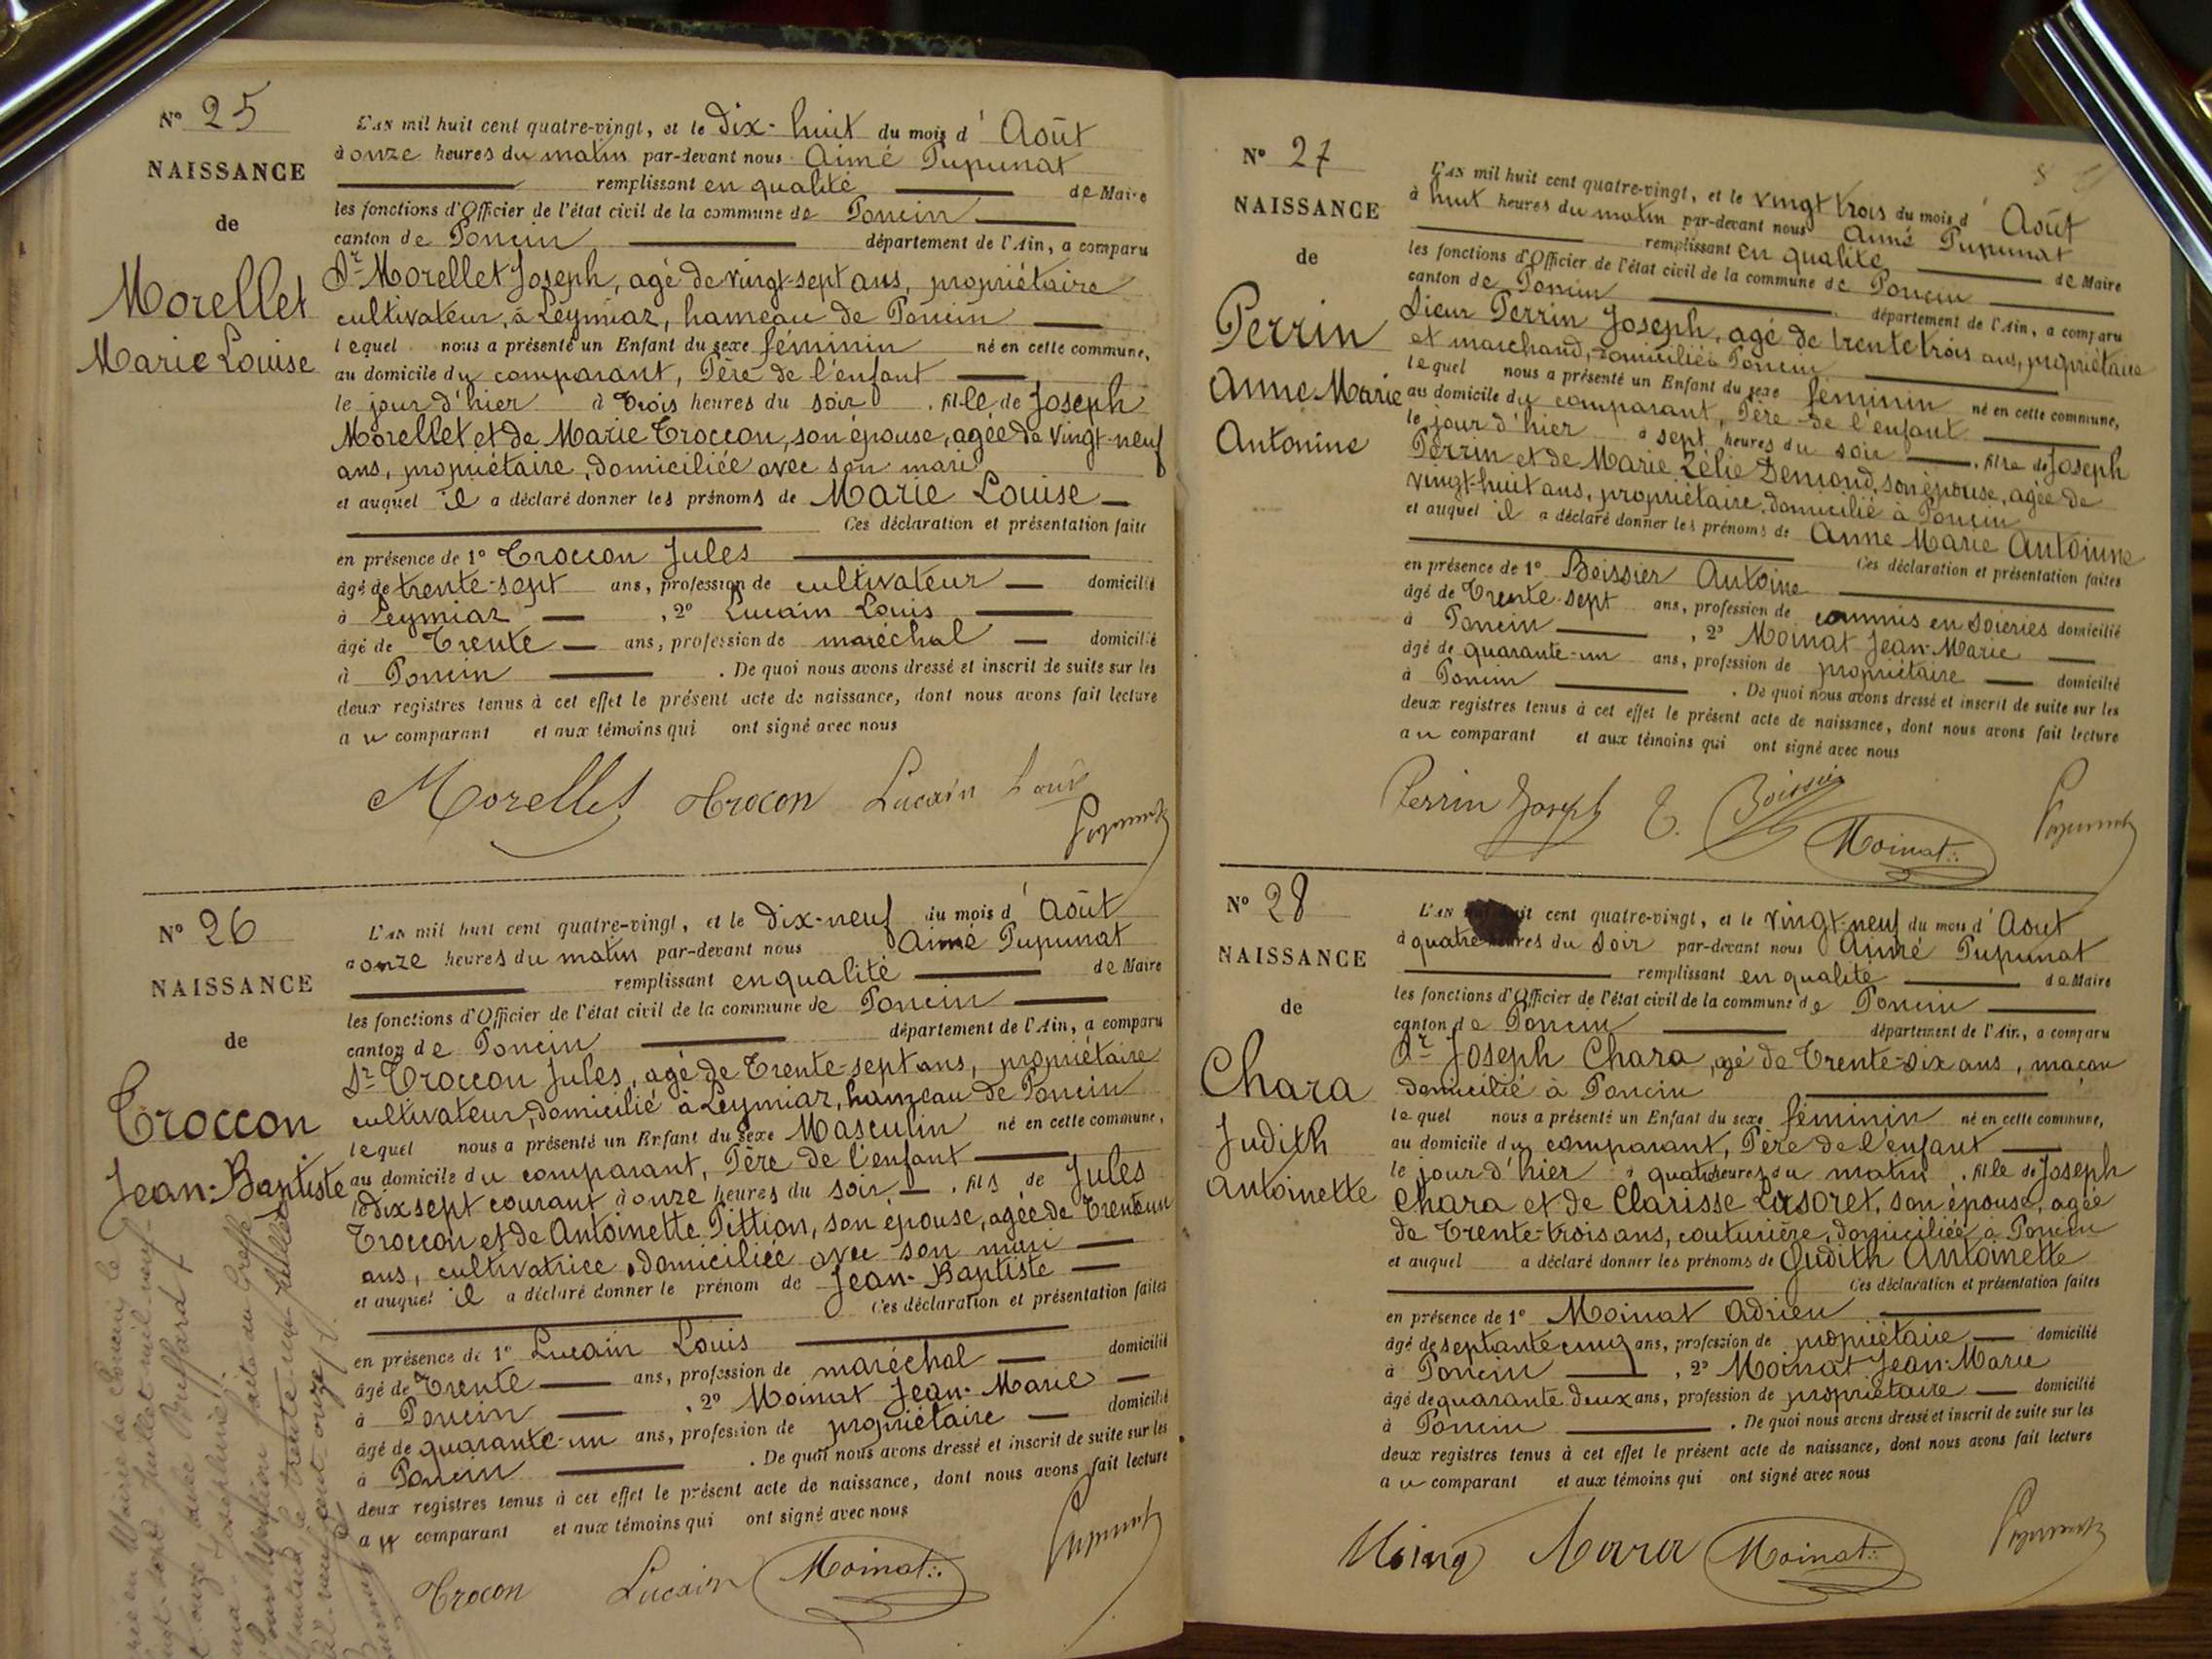 N° 25
NAISSANCE
de
Morellet
Marie Louise
L'AN mil huit cent quatre-vingt, et le dix-huit du mois d' Août
à onze heures du matin par-devant nous Aimé Pupunat
remplissant en qualité de Maire
les fonctions d'Officier de l'état civil de la commune de Poncin
canton de Poncin département de l'Ain, a comparu
Sr Morellet Joseph, agé de vingt-sept ans, propriétaire
cultivateur, à Leymiaz, hameau de Poncin
lequel nous a présenté un Enfant du sexe féminin né en cette commune,
au domicile du comparant, Père de l'enfant
le jour d'hier à trois heures du soir, fille de Joseph
Morellet et de Marie Troccon, son épouse, agée de vingt-neuf
ans, propriétaire, domiciliée avec son mari
et auquel il a déclaré donner les prénoms de Marie Louise
Ces déclaration et présentation faite
en présence de 1° Troccon Jules
âgé de trente-sept ans, profession de cultivateur domicilié
à Leymiaz, 2° Lucain Louis
âgé de Trente ans, profession de maréchal domicilié
à Poncin. De quoi nous avons dressé et inscrit de suite sur les
deux registres tenus à cet effet le présent acte de naissance, dont nous avons fait lecture
au comparant et aux témoins qui ont signé avec nous
Morellet Trocon Lucain Louis Pupunat
N° 26
NAISSANCE
de
Troccon
Jean-Baptiste
L'AN mil huit cent quatre-vingt, et le dix-neuf du mois d' Août
à onze heures du matin par-devant nous Aimé Pupunat
remplissant en qualité de Maire
les fonctions d'Officier de l'état civil de la commune de Poncin
canton de Poncin département de l'Ain, a comparu
Sr Troccon Jules, agé de Trente-sept ans, propriétaire
cultivateur, domicilié à Leymiaz, hameau de Poncin
lequel nous a présenté un Enfant du sexe Masculin né en cette commune,
au domicile du comparant, Père de l'enfant
le dix sept courant à onze heures du soir, fils de Jules
Troccon et de Antoinette Pittion, son épouse, agée de Trente un
ans, cultivatrice, domiciliée avec son mari
et auquel il a déclaré donner le prénom de Jean-Baptiste
Ces déclaration et présentation faites
en présence de 1° Lucain Louis
âgé de Trente ans, profession de maréchal domicilié
à Poncin, 2° Moinat Jean-Marie
âgé de quarante-un ans, profession de propriétaire domicilié
à Poncin. De quoi nous avons dressé et inscrit de suite sur les
deux registres tenus à cet effet le présent acte de naissance, dont nous avons fait lecture
au comparant et aux témoins qui ont signé avec nous
Trocon Lucain Moinat Pupunat
en Mairie de Poncin le
Juillet mil neuf
onze, avec Buffard
Joséphine
Pour Mention faite au Greffe
Nantua, le trente un Juillet
mil neuf cent onze
N° 27
NAISSANCE
de
Perrin
Anne Marie
Antonine
L'AN mil huit cent quatre-vingt, et le vingt trois du mois d' Août
à huit heures du matin par-devant nous Aimé Pupunat
remplissant en qualité de Maire
les fonctions d'Officier de l'état civil de la commune de Poncin
canton de Poncin département de l'Ain, a comparu
Sieur Perrin Joseph, agé de trente trois ans, propriétaire
et marchand, domicilié à Poncin
lequel nous a présenté un Enfant du sexe féminin né en cette commune,
au domicile du comparant, Père de l'enfant
le jour d'hier à sept heures du soir, fille de Joseph
Perrin et de Marie Zélie Demond, son épouse, agée de
vingt-huit ans, propriétaire, domicilié à Poncin
et auquel il a déclaré donner les prénoms de Anne Marie Antonine
Ces déclaration et présentation faites
en présence de 1° Boissier Antoine
âgé de Trente-sept ans, profession de commis en soieries domicilié
à Poncin, 2° Moinat Jean-Marie
âgé de quarante-un ans, profession de propriétaire domicilié
à Poncin. De quoi nous avons dressé et inscrit de suite sur les
deux registres tenus à cet effet le présent acte de naissance, dont nous avons fait lecture
au comparant et aux témoins qui ont signé avec nous
Perrin Joseph Boissier Moinat Pupunat
N° 28
NAISSANCE
de
Chara
Judith
Antoinette
L'AN huit cent quatre-vingt, et le vingt-neuf du mois d' Aout
à quatre heures du soir par-devant nous Aimé Pupunat
remplissant en qualité de Maire
les fonctions d'Officier de l'état civil de la commune de Poncin
canton de Poncin département de l'Ain, a comparu
Sr Joseph Chara, agé de Trente-six ans, maçon
domicilié à Poncin
lequel nous a présenté un Enfant du sexe féminin né en cette commune,
au domicile du comparant, Père de l'enfant
le jour d'hier à quatre heures du matin, fille de Joseph
Chara et de Clarisse Lasoret, son épouse, agée
de Trente-trois ans, couturière, domiciliée à Poncin
et auquel a déclaré donner les prénoms de Judith Antoinette
Ces déclaration et présentation faites
en présence de 1° Moinat Adrien
âgé de septante cinq ans, profession de propriétaire domicilié
à Poncin, 2° Moinat Jean-Marie
âgé de quarante deux ans, profession de propriétaire domicilié
à Poncin. De quoi nous avons dressé et inscrit de suite sur les
deux registres tenus à cet effet le présent acte de naissance, dont nous avons fait lecture
au comparant et aux témoins qui ont signé avec nous
Moinat Pupunat